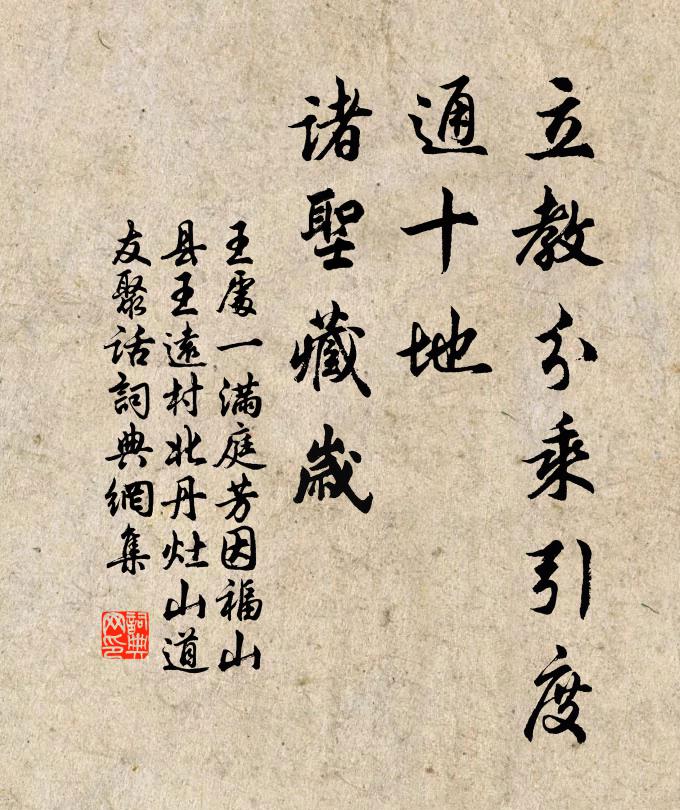 立教分乘引度
通十地
诸聖藏歲
王處一满庭芳因福山
县王遠村北丹灶山道
友聚话詞典網集
詞典
网印